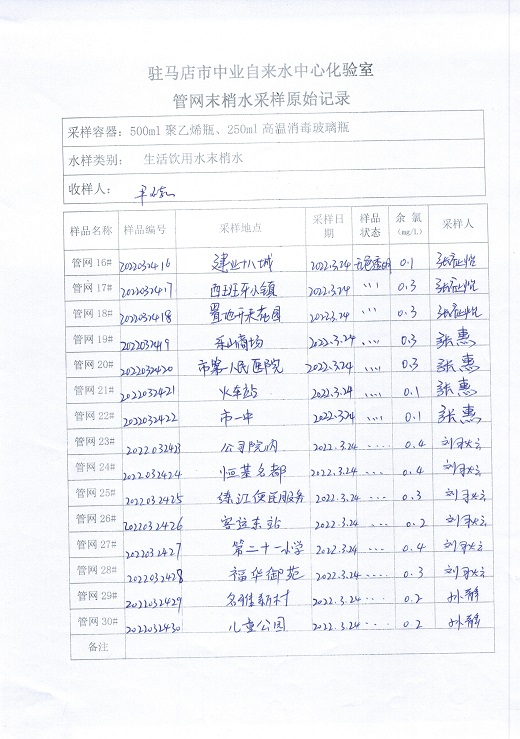 驻马店市中业自来水中心化验室
管网末梢水采样原始记录
采样容器：500ml 聚乙烯瓶、250ml 高温消毒玻璃瓶
水样类别： 生活饮用水末梢水
收样人：
样品名称 样品编号 采样地点 采样日期 样品状态 余 氯（mg/L） 采样人
管网 16# 2022032416 建业十八城 2022.3.24 无色透明 0.1
管网 17# 2022032417 西班牙小镇 2022.3.24 〃〃 0.3
管网 18# 2022032418 置地开来花园 2022.3.24 〃〃 0.3
管网 19# 2022032419 乐山商场 2022.3.24 〃〃 0.3 张惠
管网 20# 2022032420 市第一人民医院 2022.3.24 〃〃 0.3 张惠
管网 21# 2022032421 火车站 2022.3.24 〃〃 0.1 张惠
管网 22# 2022032422 市一中 2022.3.24 〃〃 0.1 张惠
管网 23# 2022032423 公司院内 2022.3.24 〃〃 0.4
管网 24# 2022032424 恒基名都 2022.3.24 〃〃 0.4
管网 25# 2022032425 练江便民服务 2022.3.24 〃〃 0.3
管网 26# 2022032426 客运东站 2022.3.24 〃〃 0.2
管网 27# 2022032427 第二十一小学 2022.3.24 〃〃 0.4
管网 28# 2022032428 福华御苑 2022.3.24 〃〃 0.3
管网 29# 2022032429 名雅新村 2022.3.24 〃〃 0.2 孙静
管网 30# 2022032430 儿童公园 2022.3.24 〃〃 0.2 孙静
备注